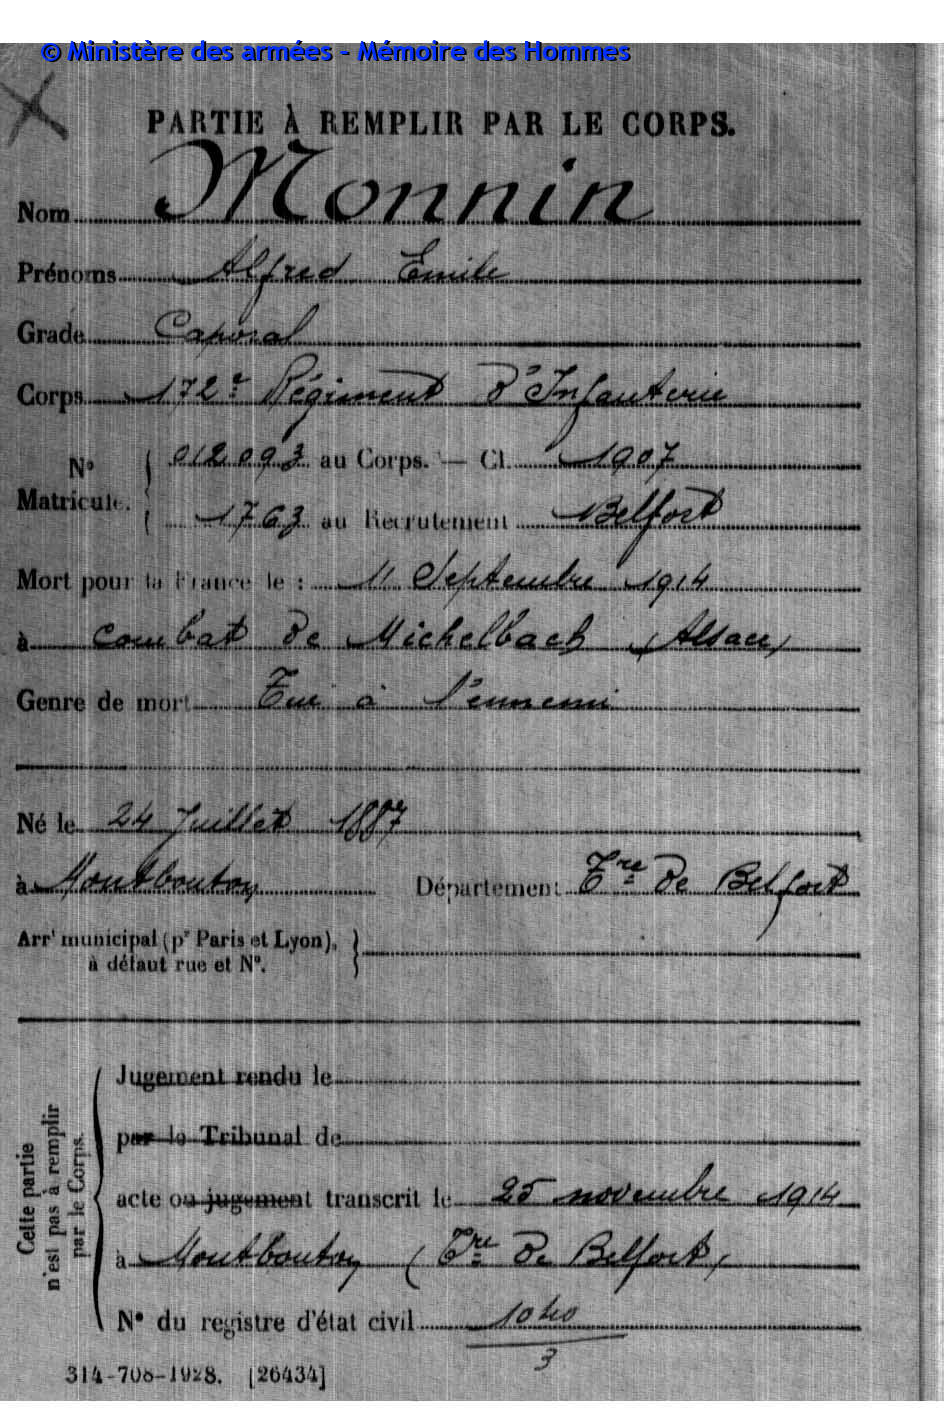 © Ministère des armées - Mémoire des Hommes
PARTIE À REMPLIR PAR LE CORPS.
Nom Monnin
Prénoms Alfred Emile
Grade Caporal
Corps 172e Régiment d'Infanterie
N° Matricule. 012093 au Corps. — Cl. 1907
1763 au Recrutement Belfort
Mort pour la France le : 11 Septembre 1914
à combat de Michelbach (Alsace)
Genre de mort Tué à l'ennemi
Né le 24 Juillet 1887
à Montbouton Département Tre de Belfort
Arrt municipal (pr Paris et Lyon),
à défaut rue et N°.
Cette partie n'est pas à remplir par le Corps.
Jugement rendu le
par le Tribunal de
acte ou jugement transcrit le 25 novembre 1914
à Montbouton (Tre de Belfort)
N° du registre d'état civil 1040
3
314-708-1928. [26434]